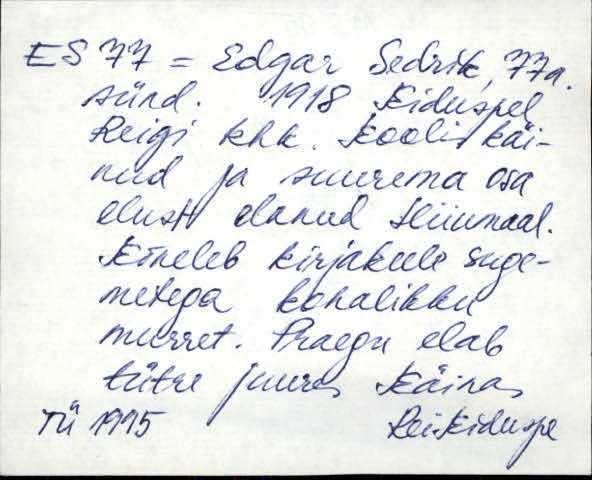 ES 77 = Edgar Sedrik, 77a.
sünd. 1918 Kiduspel
Reigi khk. Koolis käi-
nud ja suurema osa
elust elanud Hiiumaal.
Kõneleb kirjakeele suge-
metega kohalikku
murret. Praegu elab
tütre juures Käinas
TÜ 1995 Rei Kiduspe